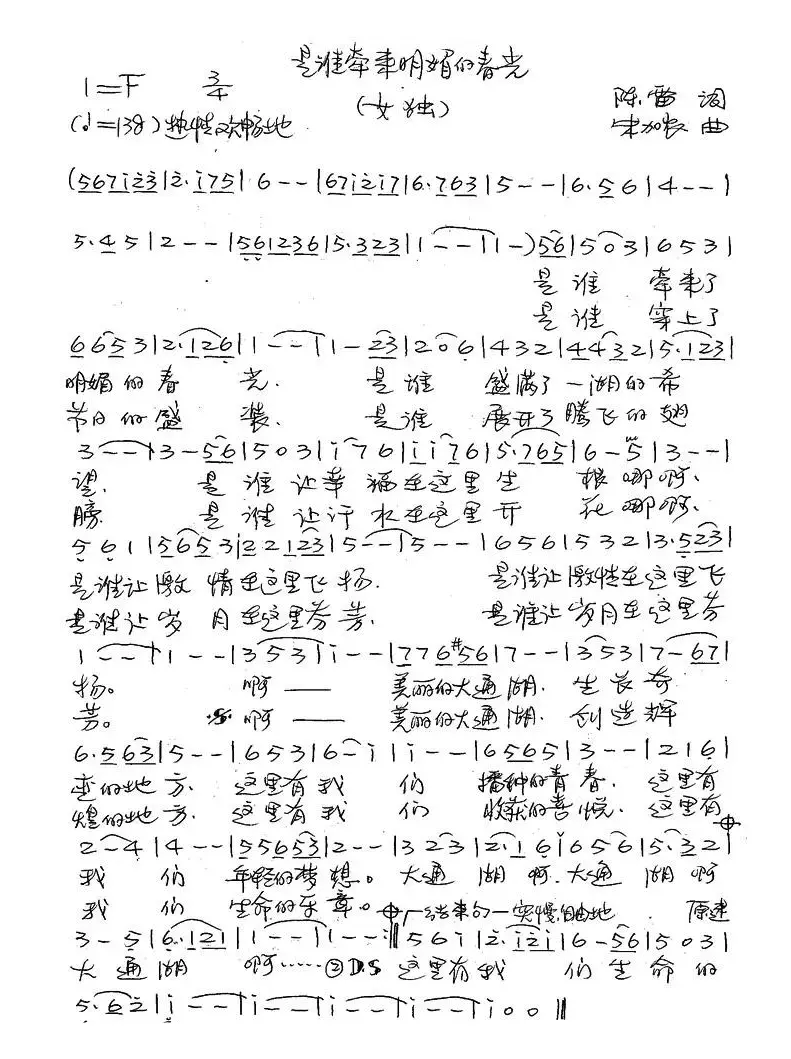 是谁牵来明媚的春光
1=F 3/4 (女独) 陈雷 词
(♩=138) 热情欢畅地 宋加农 曲
(567i23|2·i75|6--|67i2i7|6·763|5--|6·56|4--|
5·45|2--|561236|5·323|1--|1-)56|503|653|
是谁 牵来了
是谁 穿上了
6653|2·126|1--|1-23|206|432|4432|5·123|
明媚的春 光. 是谁 盛满了一湖的希
节日的盛 装. 是谁 展开了腾飞的翅
3--|3-56|503|i76|ii76|5·765|6-5|3--|
望. 是谁让幸福在这里生 根哪啊.
膀. 是谁让汗水在这里开 花哪啊.
561|5653|22123|5--|5--|656|532|3·523|
是谁让激情在这里飞扬. 是谁让激情在这里飞
是谁让岁月在这里芬芳. 是谁让岁月在这里芬
1--|1--|353|i--|776#56|7--|353|7-67|
扬。 啊—— 美丽的大通湖. 生长奇
芳。 啊—— 美丽的大通湖. 创造辉
6·563|5--|653|6-i|i--|6565|3--|216|
迹的地方. 这里有我 们 播种的青春. 这里有
煌的地方. 这里有我 们 收获的喜悦. 这里有
2-4|4--|55653|2--|323|2·16|656|5·32|
我 们 年轻的梦想。大通湖啊.大通湖啊
我 们 生命的乐章。 结束句 突慢自由地 原速
3-5|6·121|1--|1--‖56i|2·i2i|6-56|503|
大通湖 啊…… ② D.S 这里有我 们生命的
5·62|i--|i--|i--|i--|i00‖